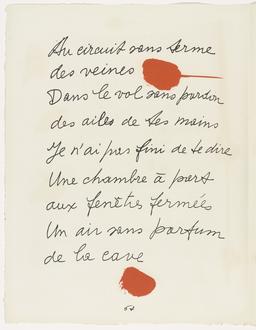 Au circuit sans terme
des veines
Dans le vol sans pardon
des ailes de tes mains
Je n'ai pas fini de te dire
Une chambre à part
aux fenêtres fermées
Un air sans parfum
de la cave